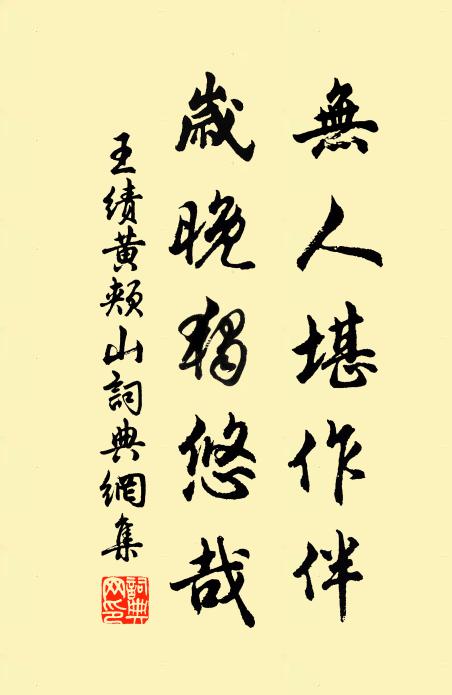 無人堪作伴
歲晚獨悠哉
王績黃頰山詞典網集
詞典网印